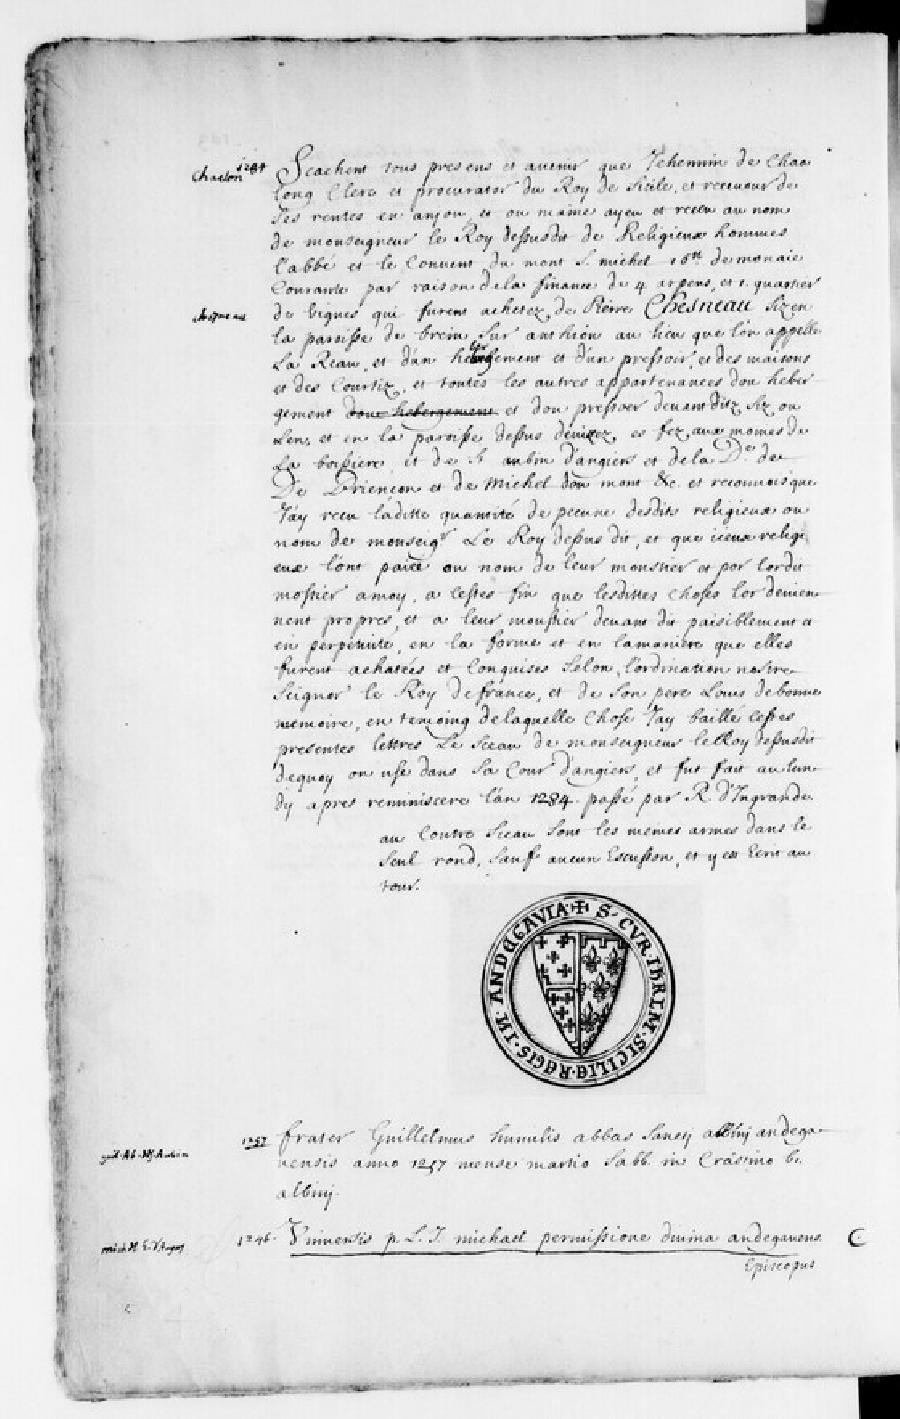 1284
Chaalon
Scachent tous presens et avenir que Jehennin de Chaa
long Clerc et procurator du Roy de Sicile, et receveur de
Ses rentes en anjou, et ou maine ayeu et receu au nom
de monseigneur le Roy dessusdit de Religieux hommes
l'abbé et le Convent du mont S. michel 16ᵗᵗ de monaie
Courante par raison de la finance de 4 arpens, et 1. quartier
de vignes qui furent achetez de Pierre Chesneau Siz en
la paroisse de brein Sur authion au lieu que l'on appelle
La Reau, et d'un hebergement et d'un pressoir, et des maisons
et des Courtiz, et toutes les autres appartenances dou heber
gement doue hebergement et dou pressoer devant ditz Siz ou
Len, et en la paroisse dessus devisez, es fez aux momes de
La boissiere et de S. aubin d'angiers et de la De. de
De Briencon et de Michel dou mont &c. et reconnois que
J'ay receu laditte quantité de pecune desdits religieux ou
nom de monseigr Le Roy dessus dit, et que iceux religi
eux l'ont paiée ou nom de leur monstier et por lordit
mostier a moy, a cestes fin que lesdittes Choses lor devien
nent propres, et a leur moustier devant dit paisiblement et
en perpetuité, en la forme et en la maniere que elles
furent achatées et Conquises Selon l'ordination nostre
Seignor le Roy de france, et de Son pere Louis de bonne
memoire, en temoing de laquelle Chose J'ay baillé cestes
presentes lettres Le Sceau de monseigneur le Roy dessusdit
dequoy on use dans Sa Cour d'angiers, et fut fait au lun
dy apres reminiscere l'an 1284. passé par R. D'Ingrande.
au Contre Sceau Sont les memes armes dans le
Seul rond, Sauf aucun Escusson, et y est Ecrit au
tour.
✠ S' CVR. IHRLM. SICILIE. REGIS. IN. ANDEGAVIA
1257 frater Guillelmus humilis abbas Sancti albinj andega
vensis anno 1257 mense martio Sabb. in Crastino b.
albinj.
1246. Universis p. L. J. michael permissione divina andegavens.
Episcopus